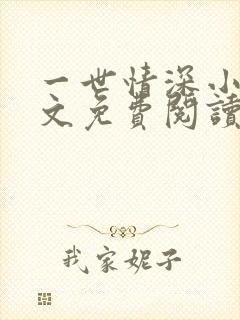 一世情深小
文免費閱讀
我家妮子